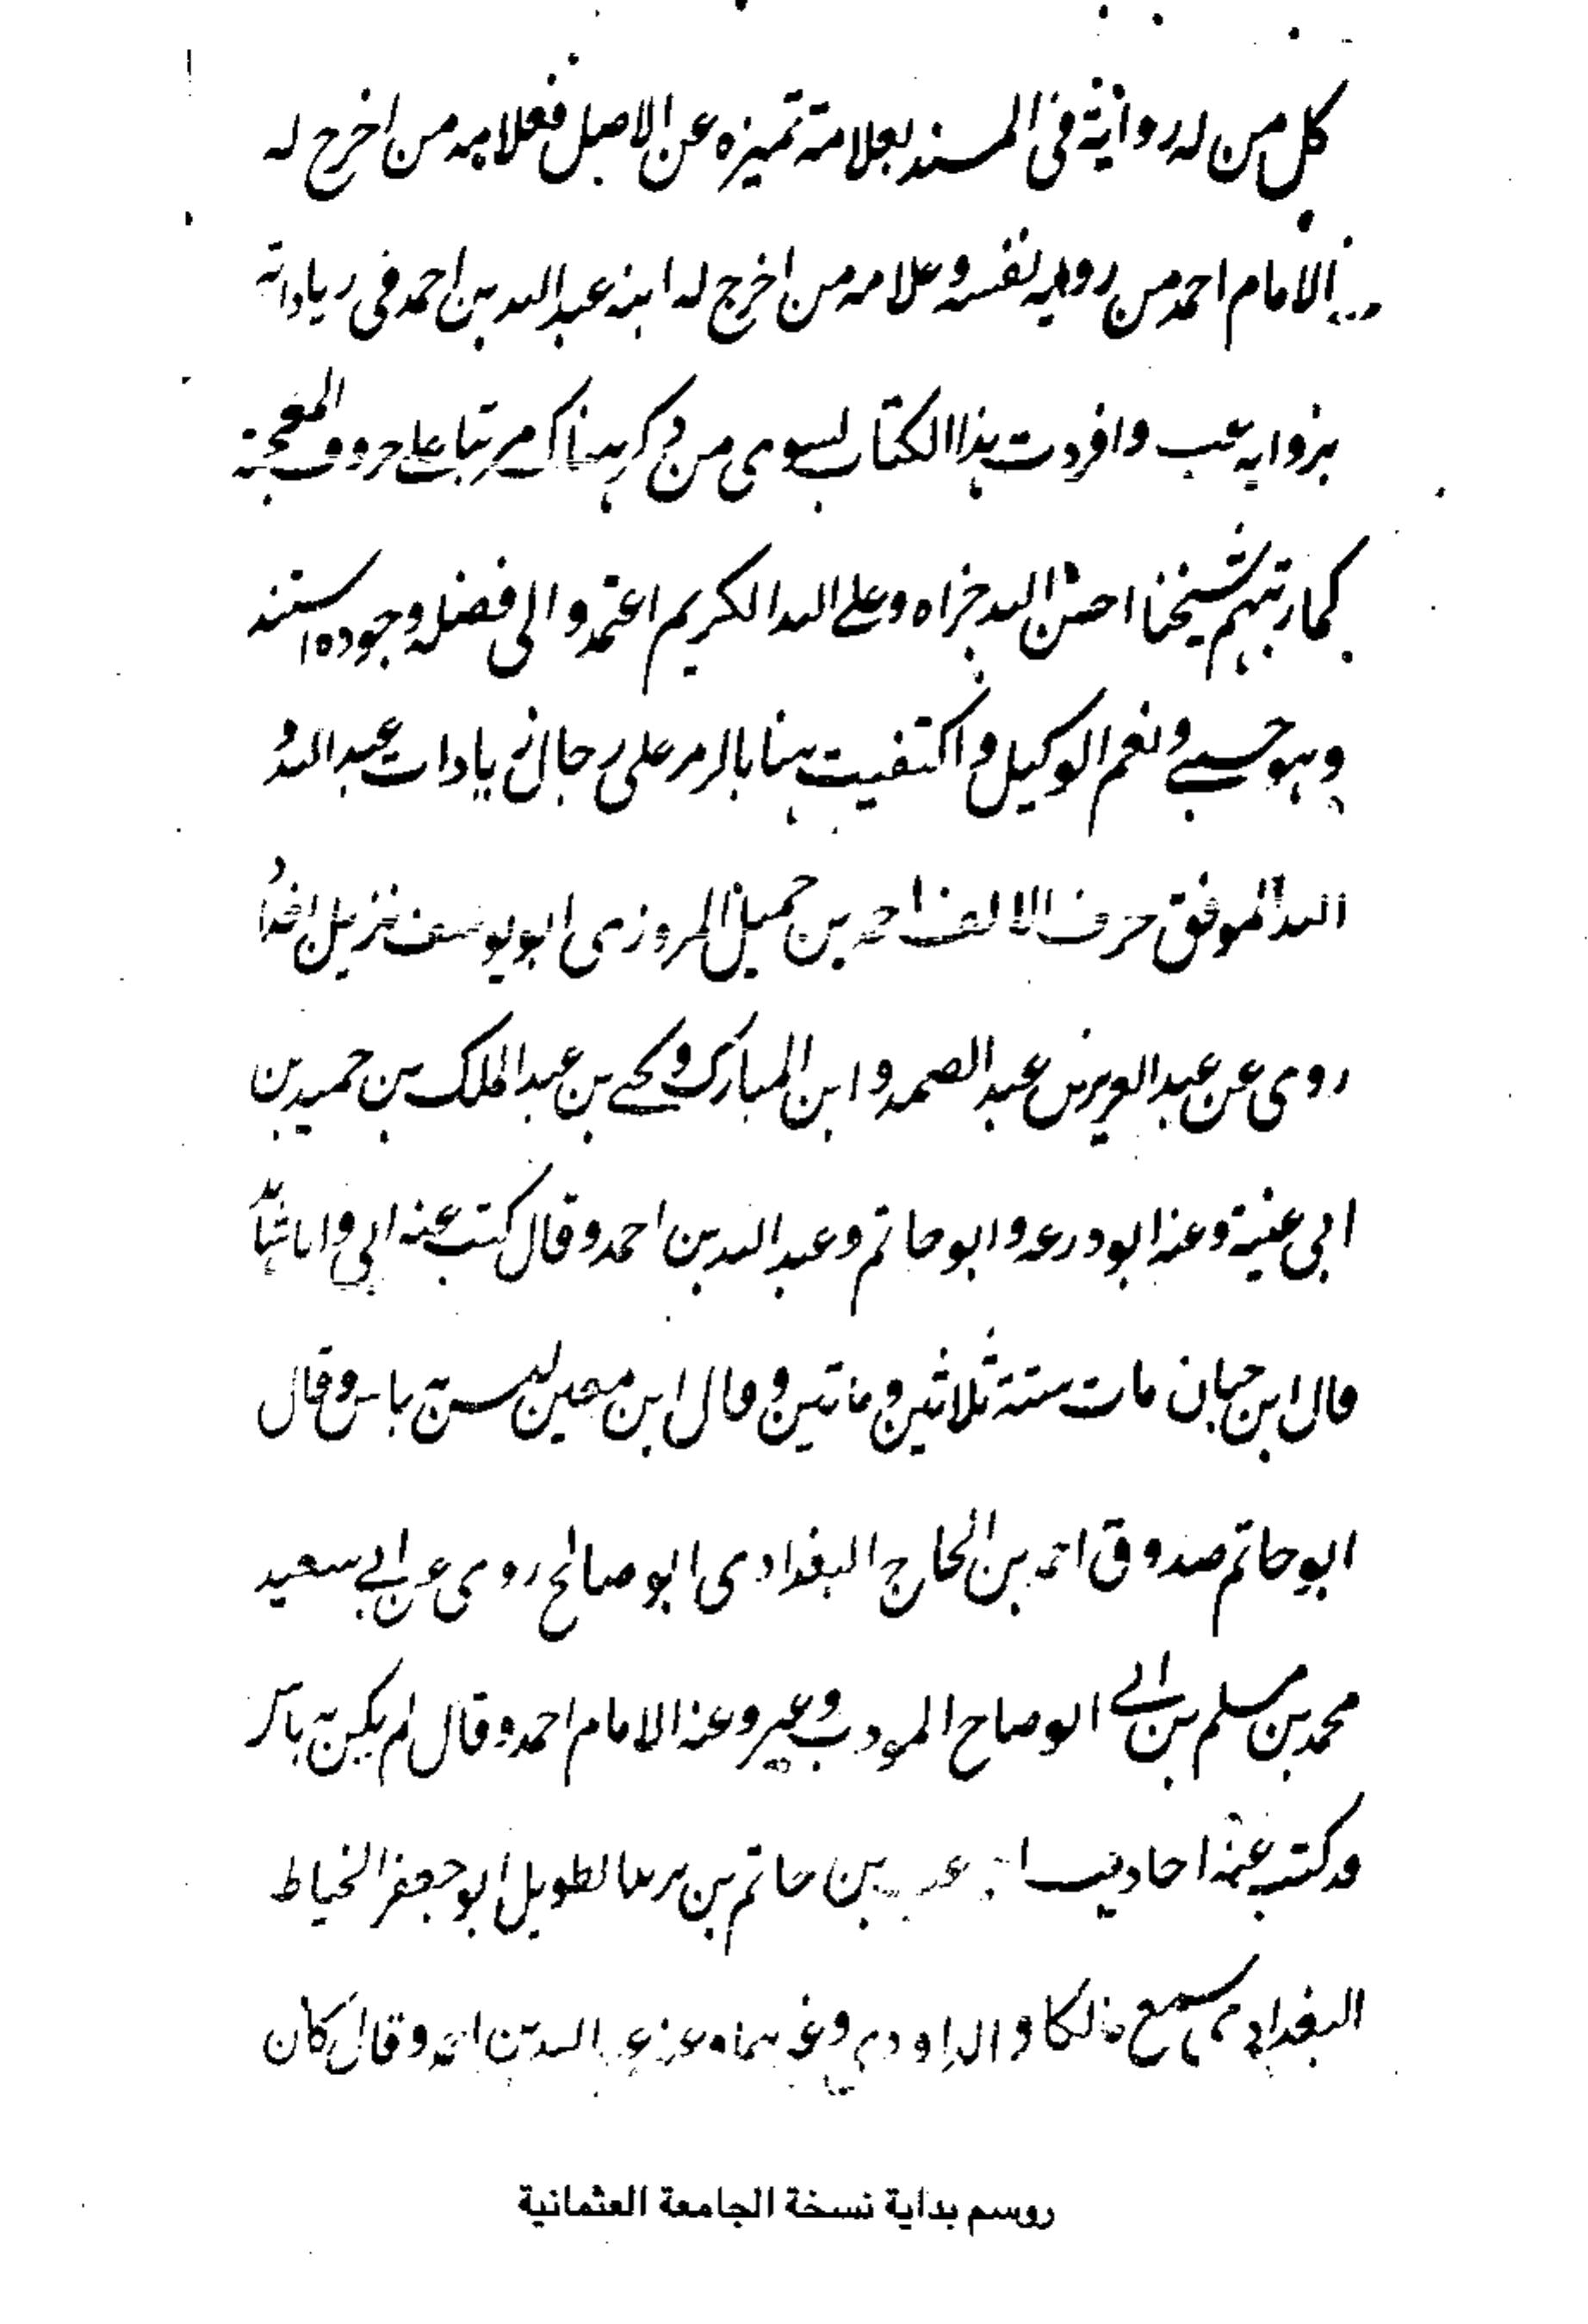 كل من له رواية في المسند بعلامة تميزه عن الاصل فعلامه من اخرج له
الامام احمد من روايه نفسه و علامه من اخرج له ابنه عبد الله بن احمد في زياداته
بزوايه عب وافردت هذا الكتاب لسوى من ذكر هناك مرتبا على حروف المعجمة
كما رتبهم شيخنا احسن الله جزاه وعلى الله الكريم اعتمد والى فضله وجوده استند
وهو حسبي ونعم الوكيل و اكتفيت هنا بالرمز على رجال زيادات عبد الله و
الله الموفق حرف الالف احمد بن جميل المروزى ابو يوسف نزيل بغداد
روى عن عبد العزيز بن عبد الصمد و ابن المبارك ويحي بن عبد الملك بن حميد بن
ابي غنية و عنه ابو زرعه و ابو حاتم و عبد الله بن احمد و قال كتب عنه ابي و انا شاهد
قال ابن حبان مات سنة ثلاثين و مائتين و قال ابن معين ليس به باس و قال
ابو حاتم صدوق احمد بن الحاج البغدادى ابو صالح روى عن ابي سعيد
محمد بن مسلم بن ابي الوضاح المودب و غيره و عنه الامام احمد و قال لم يكن به باس
وكتب عنه احاديث بن حاتم بن يزيد الطويل ابو جعفر الخياط
البغدادي سمع مالكا و الداودي وغيرهما و عنه عبد الله بن احمد و قال كان
روسم بداية نسخة الجامعة العثمانية